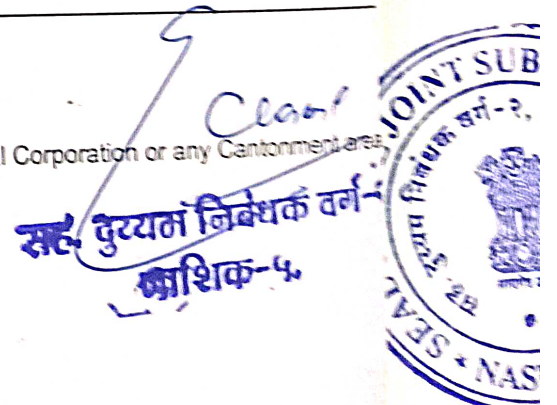 l Corporation or any Cantonment area,
सह. दुय्यम निबंधक वर्ग-
नाशिक-५.
JOINT SUB
सह. दुय्यम निबंधक वर्ग-२,
SEAL * NAS